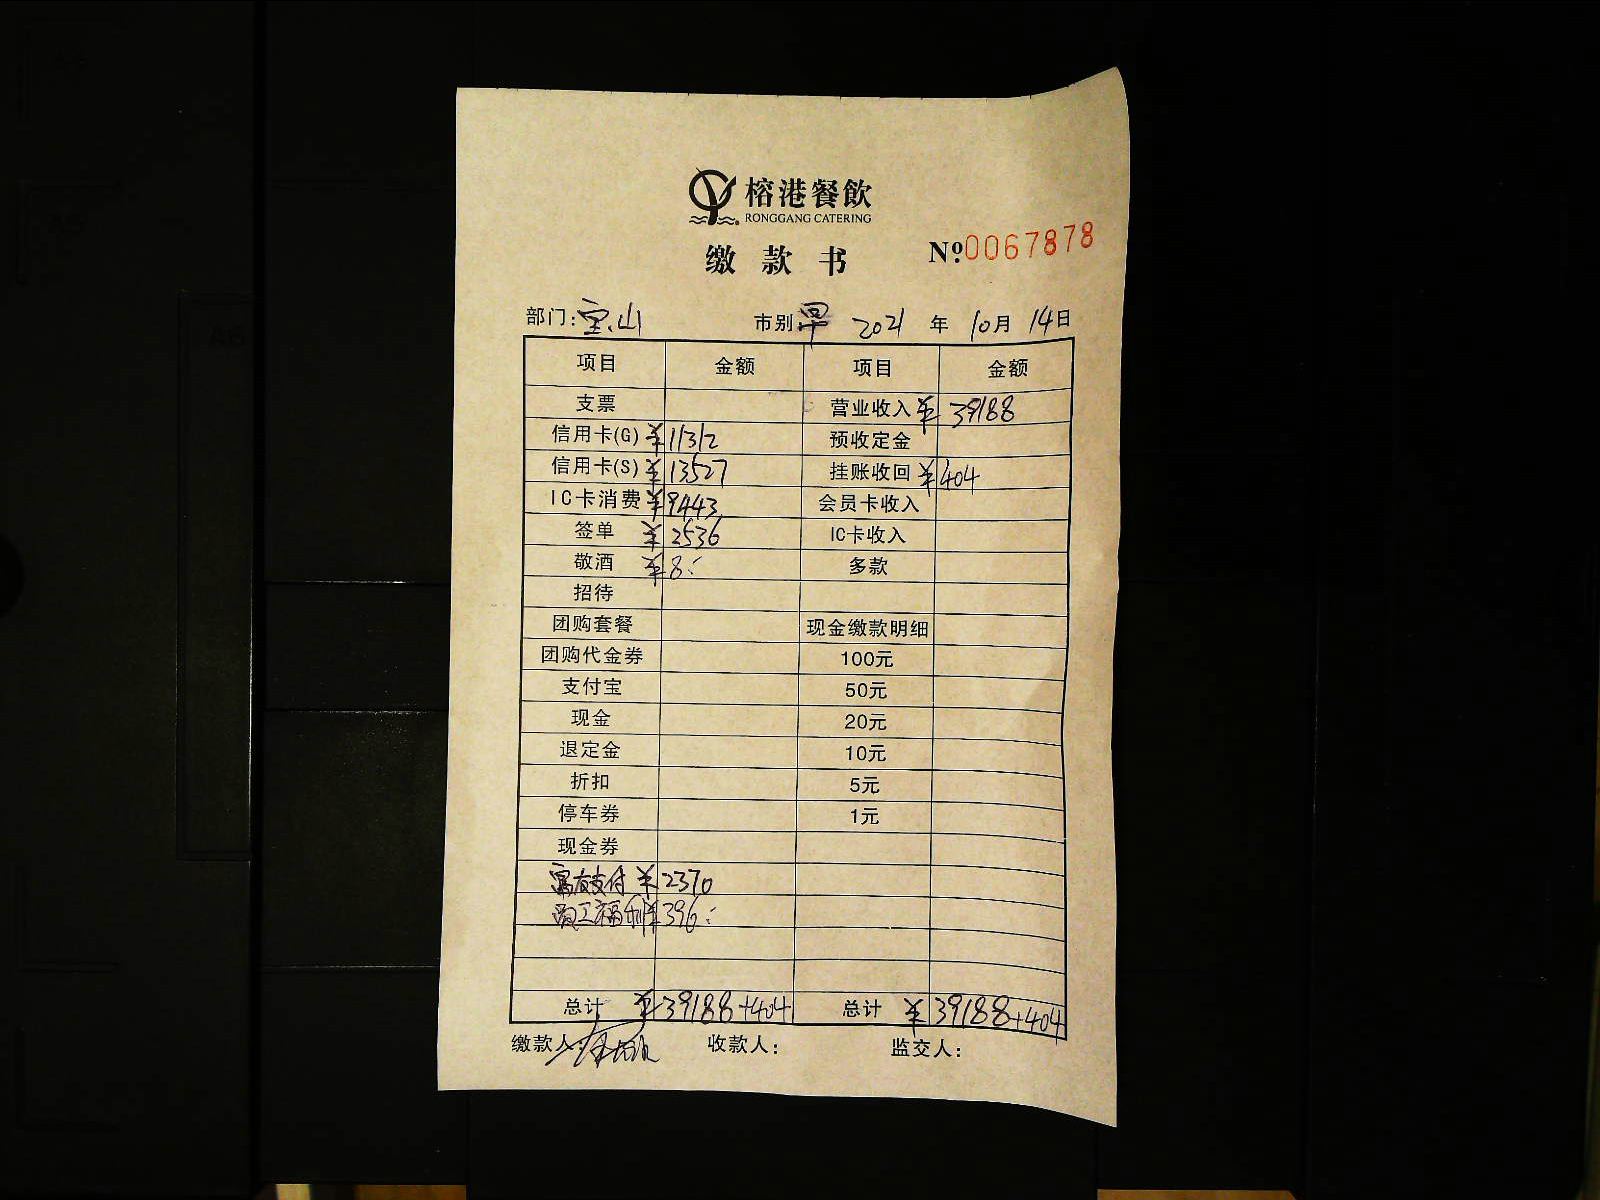 榕港餐飲
RONGGANG CATERING
缴款书
Nº:0067878
部门:宝山 市别:早 2021年10月14日
项目 金额 项目 金额
支票 营业收入 ¥39188
信用卡(G) ¥11312 预收定金
信用卡(S) ¥13527 挂账收回 ¥404
IC卡消费 ¥9443 会员卡收入
签单 ¥2536 IC卡收入
敬酒 ¥8:- 多款
招待
团购套餐 现金缴款明细
团购代金券 100元
支付宝 50元
现金 20元
退定金 10元
折扣 5元
停车券 1元
现金券
富友支付 ¥2370
员工福利 ¥396:-
总计 ¥39188+404 总计 ¥39188+404
缴款人: 收款人: 监交人: